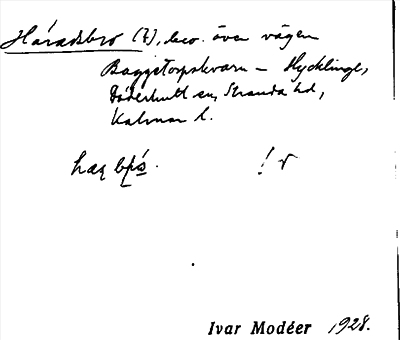 Häradsbro (?), bro över vägen
Baggetorpskvarn – Hycklinge,
Döderhult sn, Stranda hd,
Kalmar l.
! v
Ivar Modéer 1928.